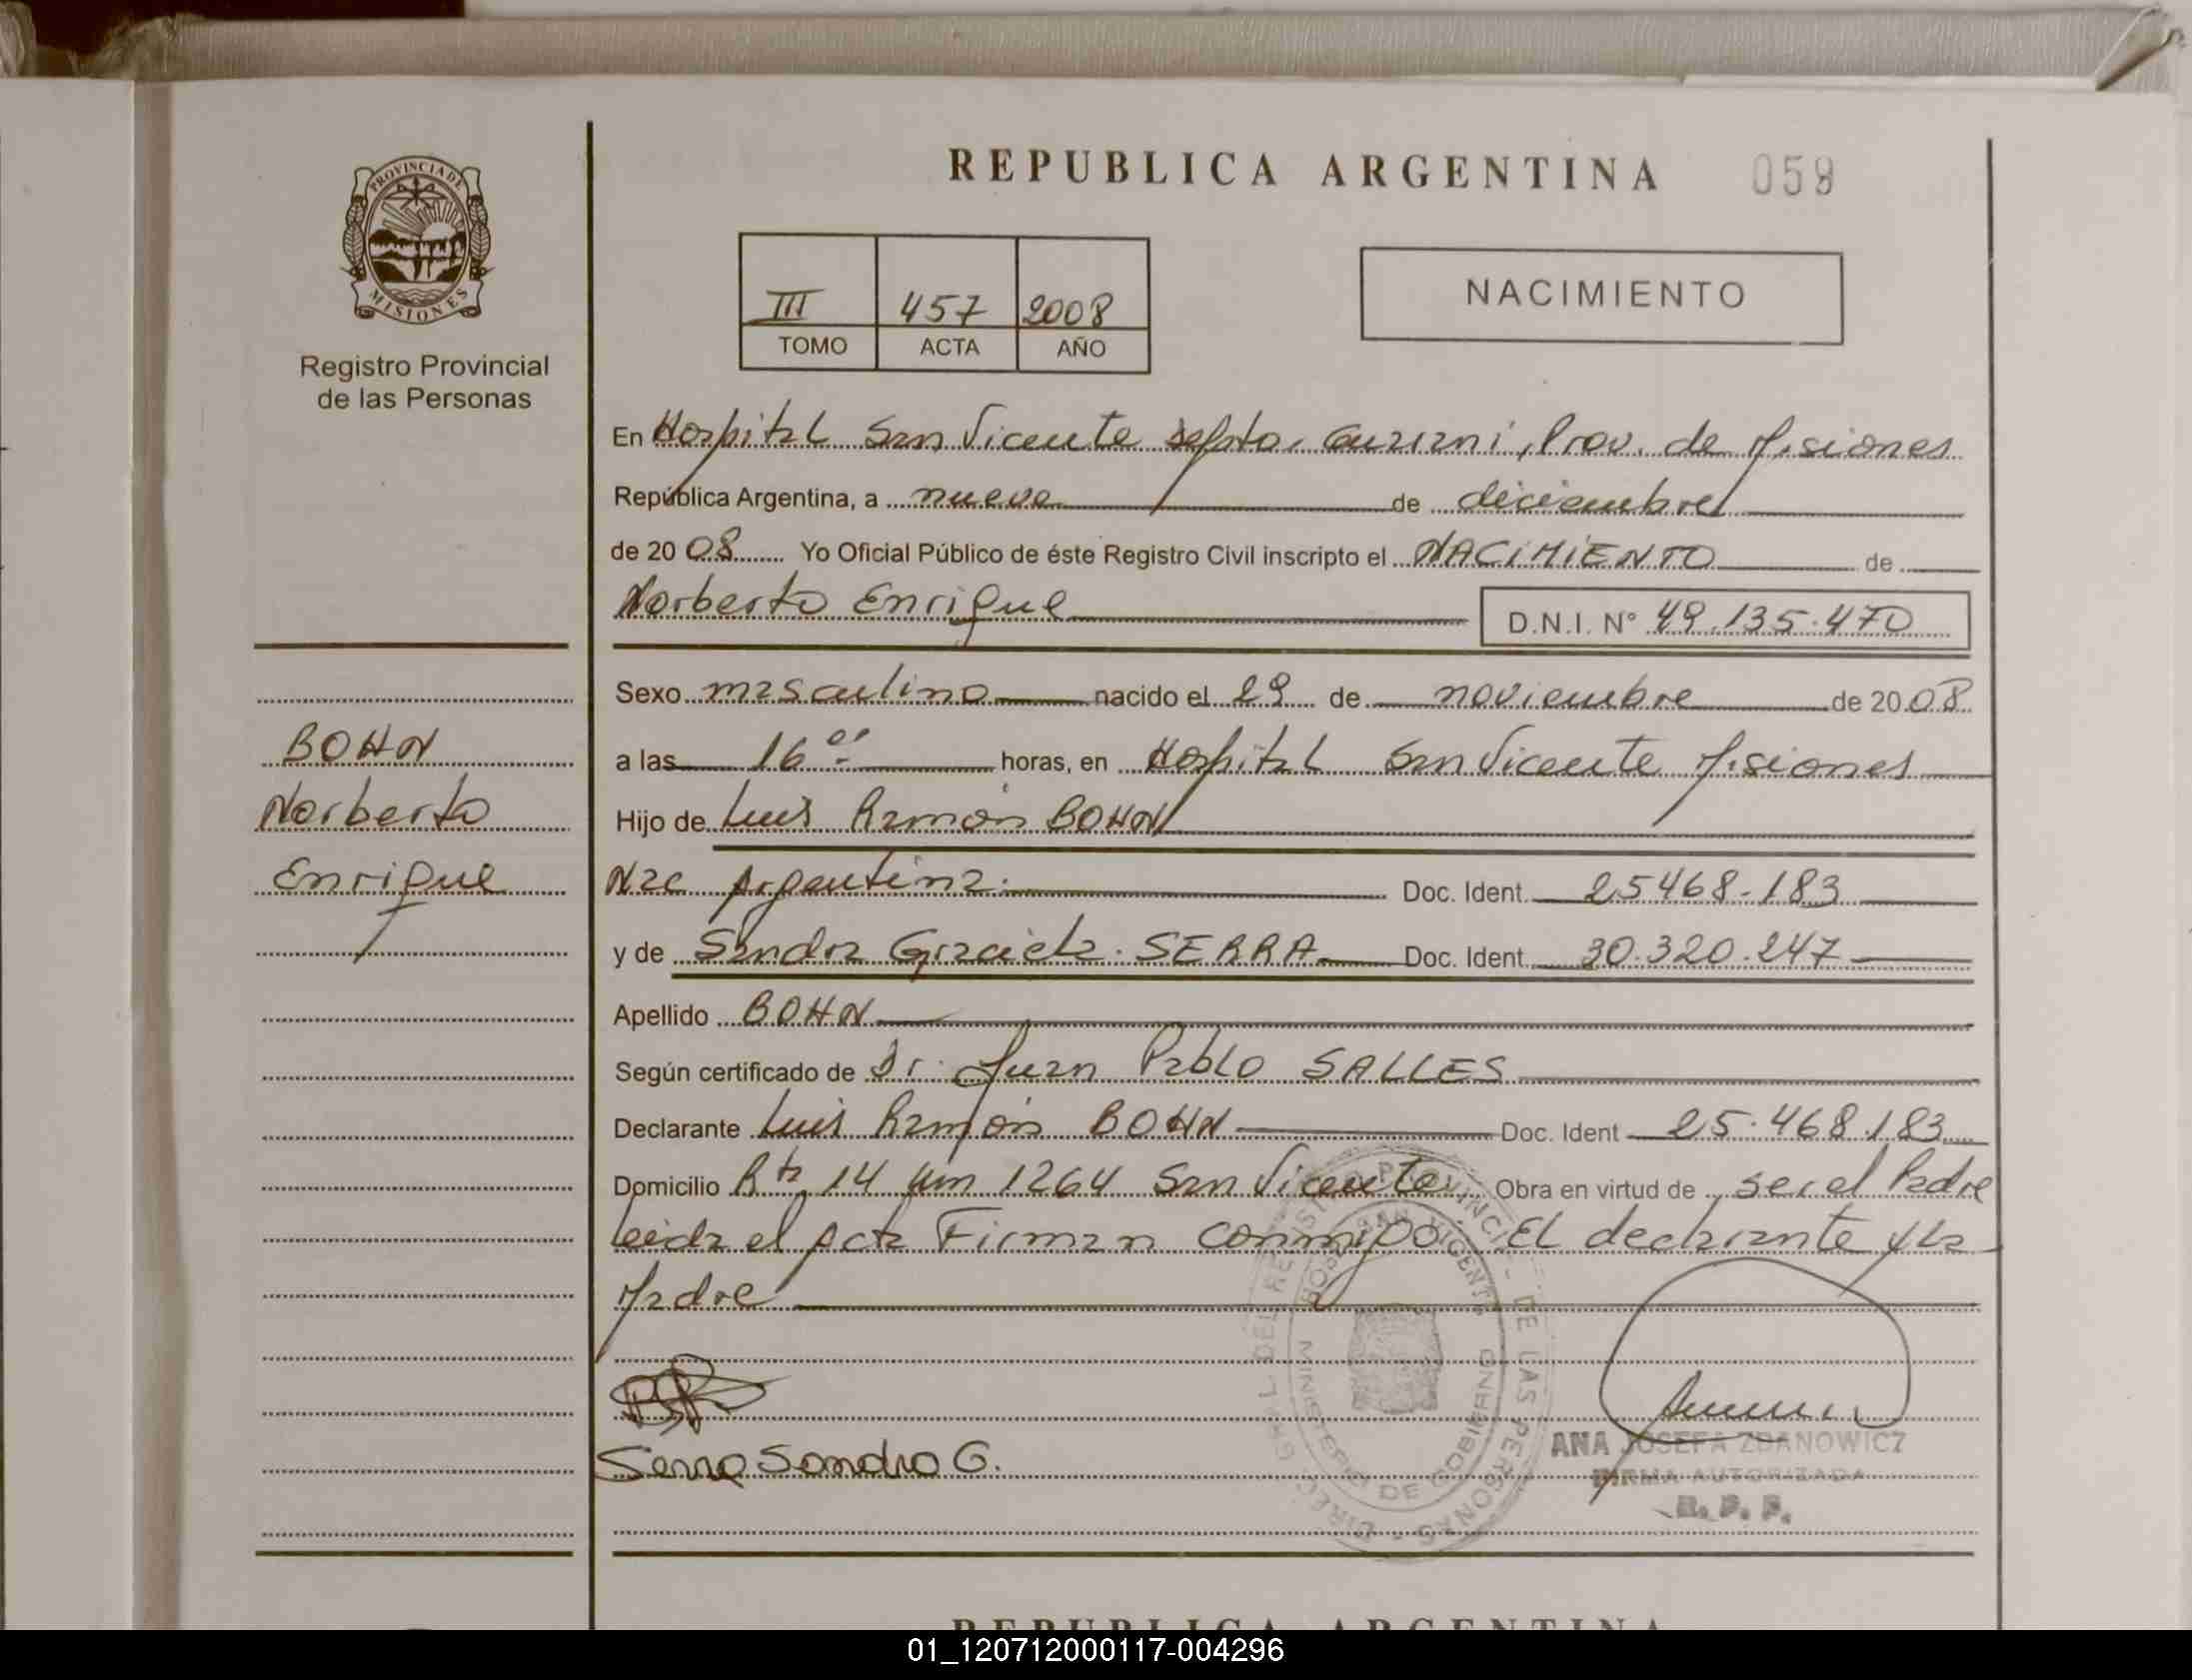 REPUBLICA ARGENTINA 059
PROVINCIA DE
MISIONES
Registro Provincial
de las Personas
III 457 2008
TOMO ACTA AÑO
NACIMIENTO
En Hospital San Vicente Depto. Guarani, Prov. de Misiones
República Argentina, a nueve de diciembre
de 2008 Yo Oficial Público de éste Registro Civil inscripto el NACIMIENTO de
Norberto Enrique D.N.I. N° 49.135.470
Sexo masculino nacido el 29 de noviembre de 2008
BOHN
a las 16 horas, en Hospital San Vicente Misiones
Norberto
Hijo de Luis Ramón BOHN
Enrique
Nac Argentina. Doc. Ident. 25468.183
y de Sandra Graciela. SERRA Doc. Ident. 30.320.247
Apellido BOHN
Según certificado de Dr. Juan Pablo SALLES
Declarante Luis Ramón BOHN Doc. Ident 25.468.183
Domicilio Rta 14 km 1264 San Vicente Obra en virtud de ser el Padre
leida el Acta Firman conmigo El declarante y la
Madre
Serra Sandra G.
DIRECC. GRAL. DEL REGISTRO PROVINCIAL DE LAS PERSONAS -
HOSP. SAN VICENTE
MINISTERIO DE GOBIERNO
ANA JOSEFA ZDANOWICZ
FIRMA AUTORIZADA
R. P. P.
REPUBLICA ARGENTINA
01_120712000117-004296